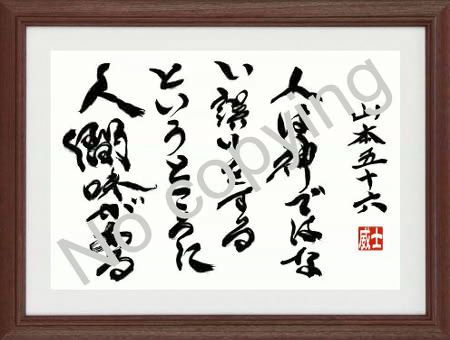 山本五十六
人は神ではな
い誤りをする
というところに
人間味がある
威士
No copying